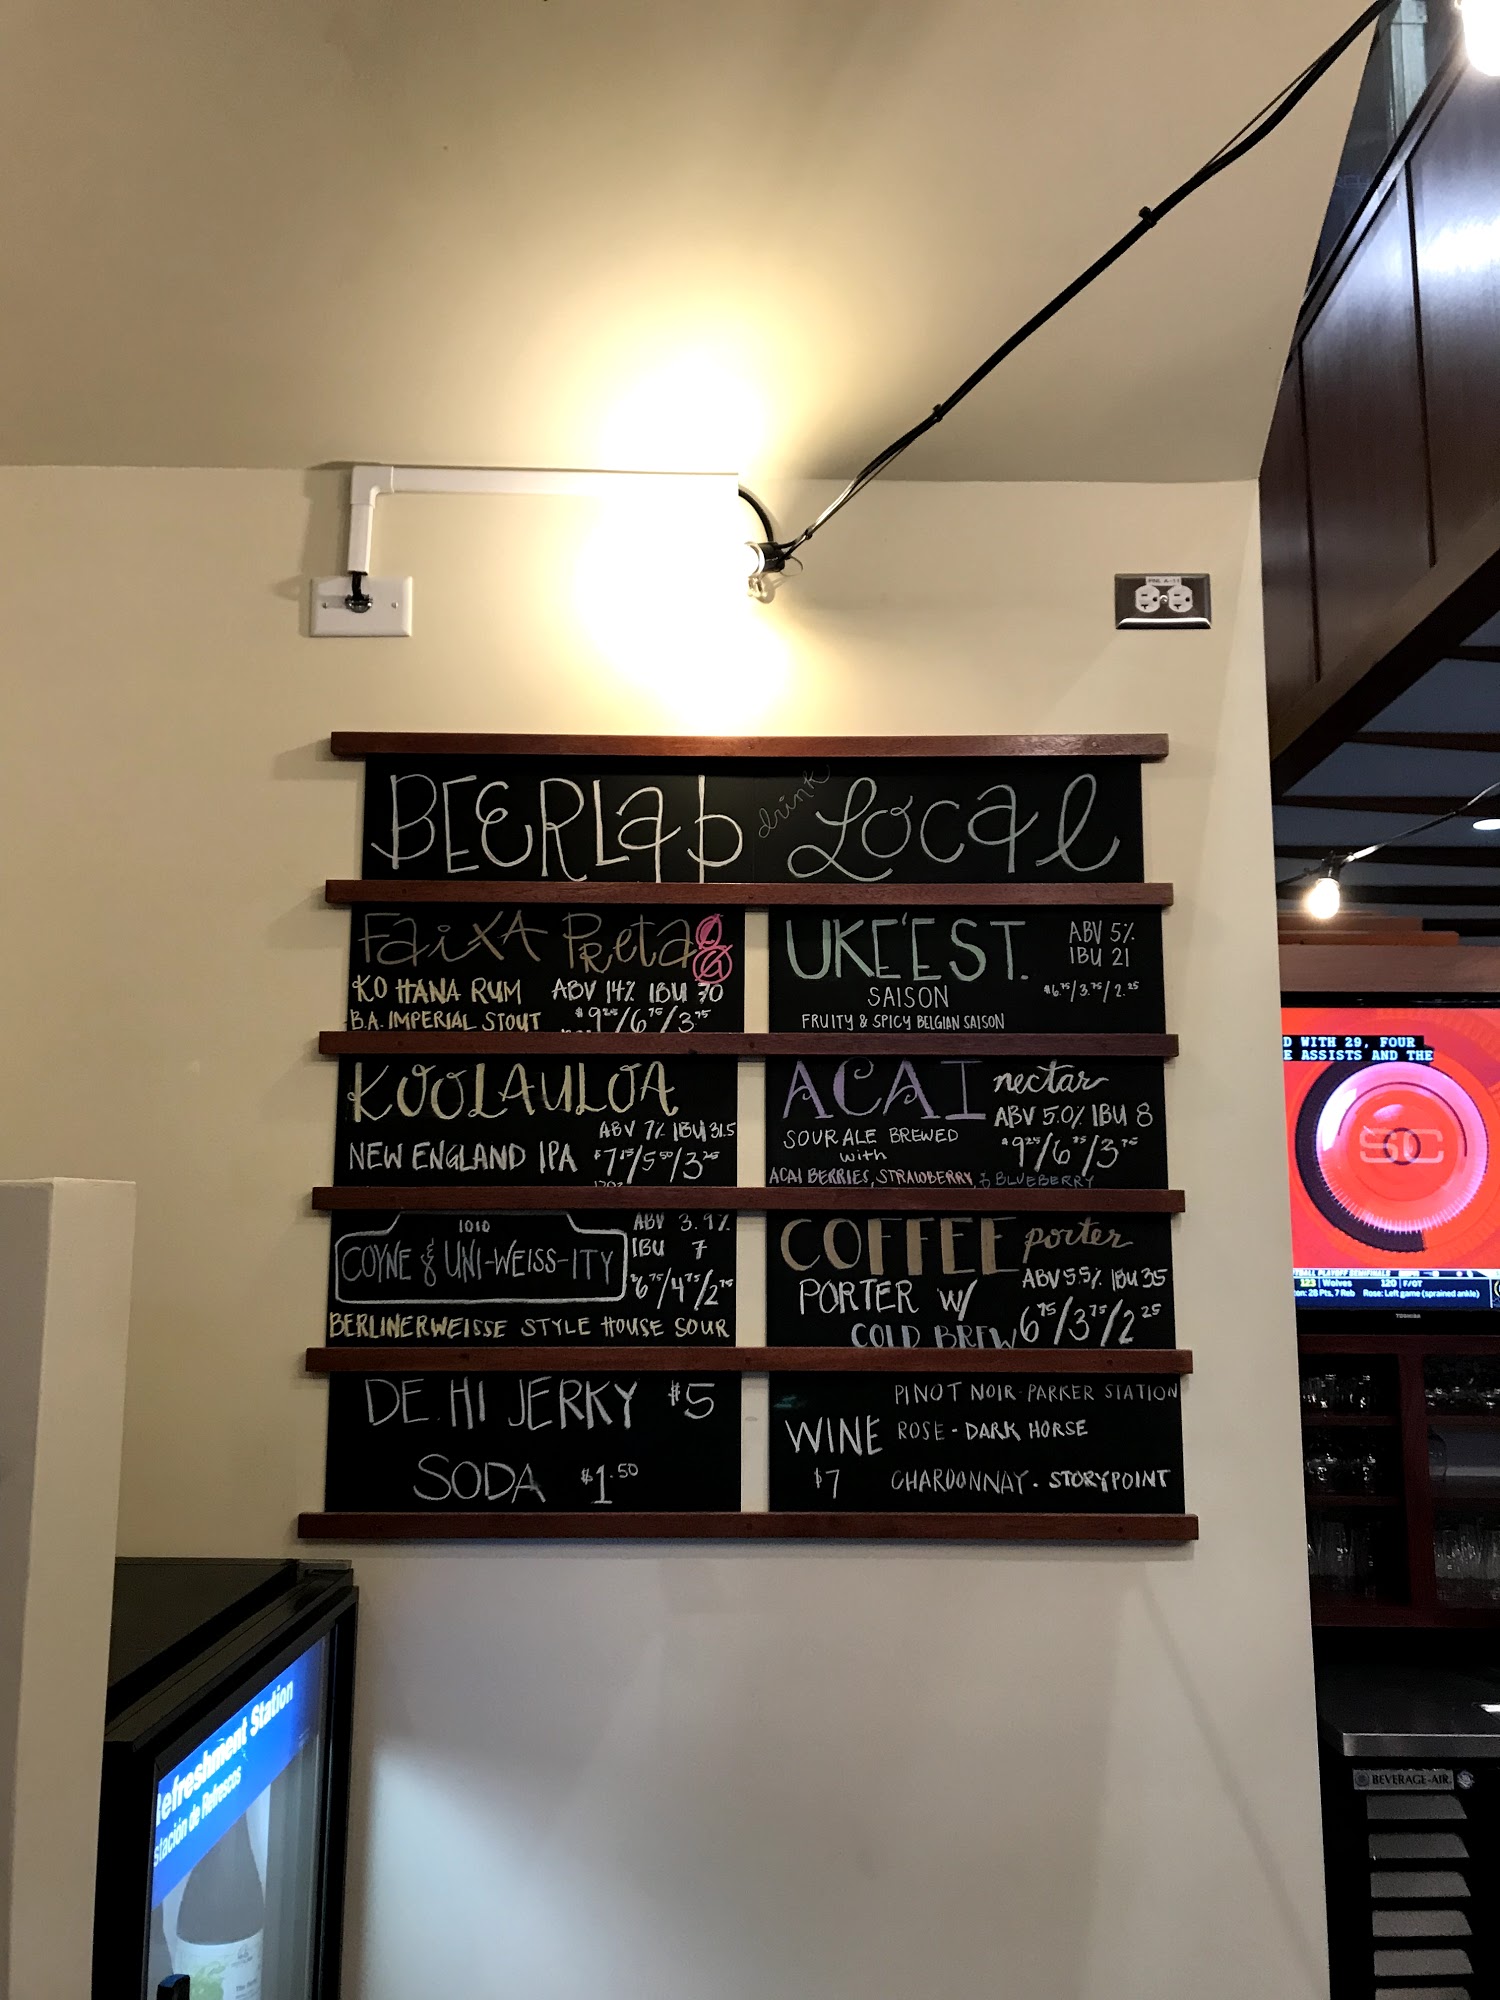 BEERLab drink Local
FaiXA PReta
KO HANA RUM ABV 14% IBU 70
B.A. IMPERIAL STOUT $9.25/6.75/3.75
UKE'EST.
ABV 5%
IBU 21
SAISON
$6.75/3.75/2.25
FRUITY & SPICY BELGIAN SAISON
KOOLAULOA
ABV 7% IBU 31.5
NEW ENGLAND IPA $7.75/5.50/3.25
ACAI nectar
ABV 5.0% IBU 8
SOUR ALE BREWED
with
$9.25/6.75/3.75
ACAI BERRIES, STRAWBERRY, & BLUEBERRY
1010
COYNE & UNI-WEISS-ITY
ABV 3.9%
IBU 7
$6.75/4.75/2.75
BERLINERWEISSE STYLE HOUSE SOUR
COFFEE porter
ABV 5.5% IBU 35
PORTER W/
COLD BREW
6.75/3.75/2.25
DE. HI JERKY $5
SODA $1.50
WINE
$7
PINOT NOIR- PARKER STATION
ROSE - DARK HORSE
CHARDONNAY . STORYPOINT
D WITH 29, FOUR
E ASSISTS AND THE
SC
123 Wolves 120 F/OT
28 Pts, 7 Reb Rose: Left game (sprained ankle)
TOSHIBA
BEVERAGE-AIR
efreshment Station
stación de Refrescos